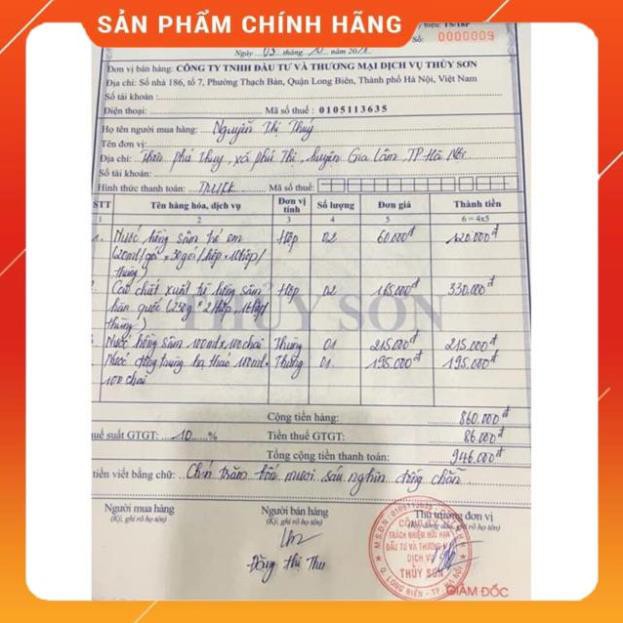 SẢN PHẨM CHÍNH HÃNG
Số: 0000009
Ngày 03 tháng năm
Đơn vị bán hàng: CÔNG TY TNHH ĐẦU TƯ VÀ THƯƠNG MẠI DỊCH VỤ THÙY SƠN
Địa chỉ: Số nhà 186, tổ 7, Phường Thạch Bàn, Quận Long Biên, Thành phố Hà Nội, Việt Nam
Số tài khoản:
Điện thoại: Mã số thuế: 0105113635
Họ tên người mua hàng: Nguyễn Thị Thúy
Tên đơn vị:
Địa chỉ: Thôn phú thụy, xã phú Thị, huyện Gia Lâm, TP Hà Nội
Số tài khoản:
Hình thức thanh toán: TM/CK Mã số thuế:
STT Tên hàng hóa, dịch vụ Đơn vị tính Số lượng Đơn giá Thành tiền
1 2 3 4 5 6=4x5
1. Nước hồng sâm trẻ em Hộp 02 60.000đ 120.000đ
(20ml/gói × 30gói/hộp × hộp/
thùng)
Cao chiết xuất từ hồng sâm Hộp 02 165.000đ 330.000đ
hàn quốc (250g * 2/hộp, hộp/
thùng)
THÙY SƠN
Nước hồng sâm 100ml x 100chai Thùng 01 215.000đ 215.000đ
Nước đông trùng hạ thảo 100ml * Thùng 01 195.000đ 195.000đ
100 chai
Cộng tiền hàng: 860.000đ
uế suất GTGT: 10 % Tiền thuế GTGT: 86.000đ
Tổng cộng tiền thanh toán: 946.000đ
tiền viết bằng chữ: Chín trăm bốn mươi sáu nghìn đồng chẵn
Người mua hàng Người bán hàng Thủ trưởng đơn vị
(Ký, ghi rõ họ tên) (Ký, ghi rõ họ tên)
M.S.D.N: 0105113635
CÔNG TY
TRÁCH NHIỆM HỮU HẠN
ĐẦU TƯ VÀ THƯƠNG MẠI
DỊCH VỤ
THÙY SƠN
Q. LONG BIÊN - TP. HÀ NỘI
Đồng Thị Thu
GIÁM ĐỐC